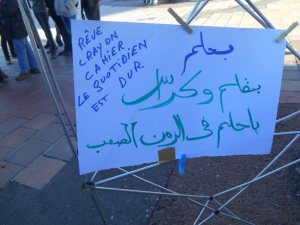 RÊVE
CRAYON
CAHIER
LE QUOTIDIEN
EST DUR.
بحلم
بقلم وكراس
باحلم في الزمن الصعب